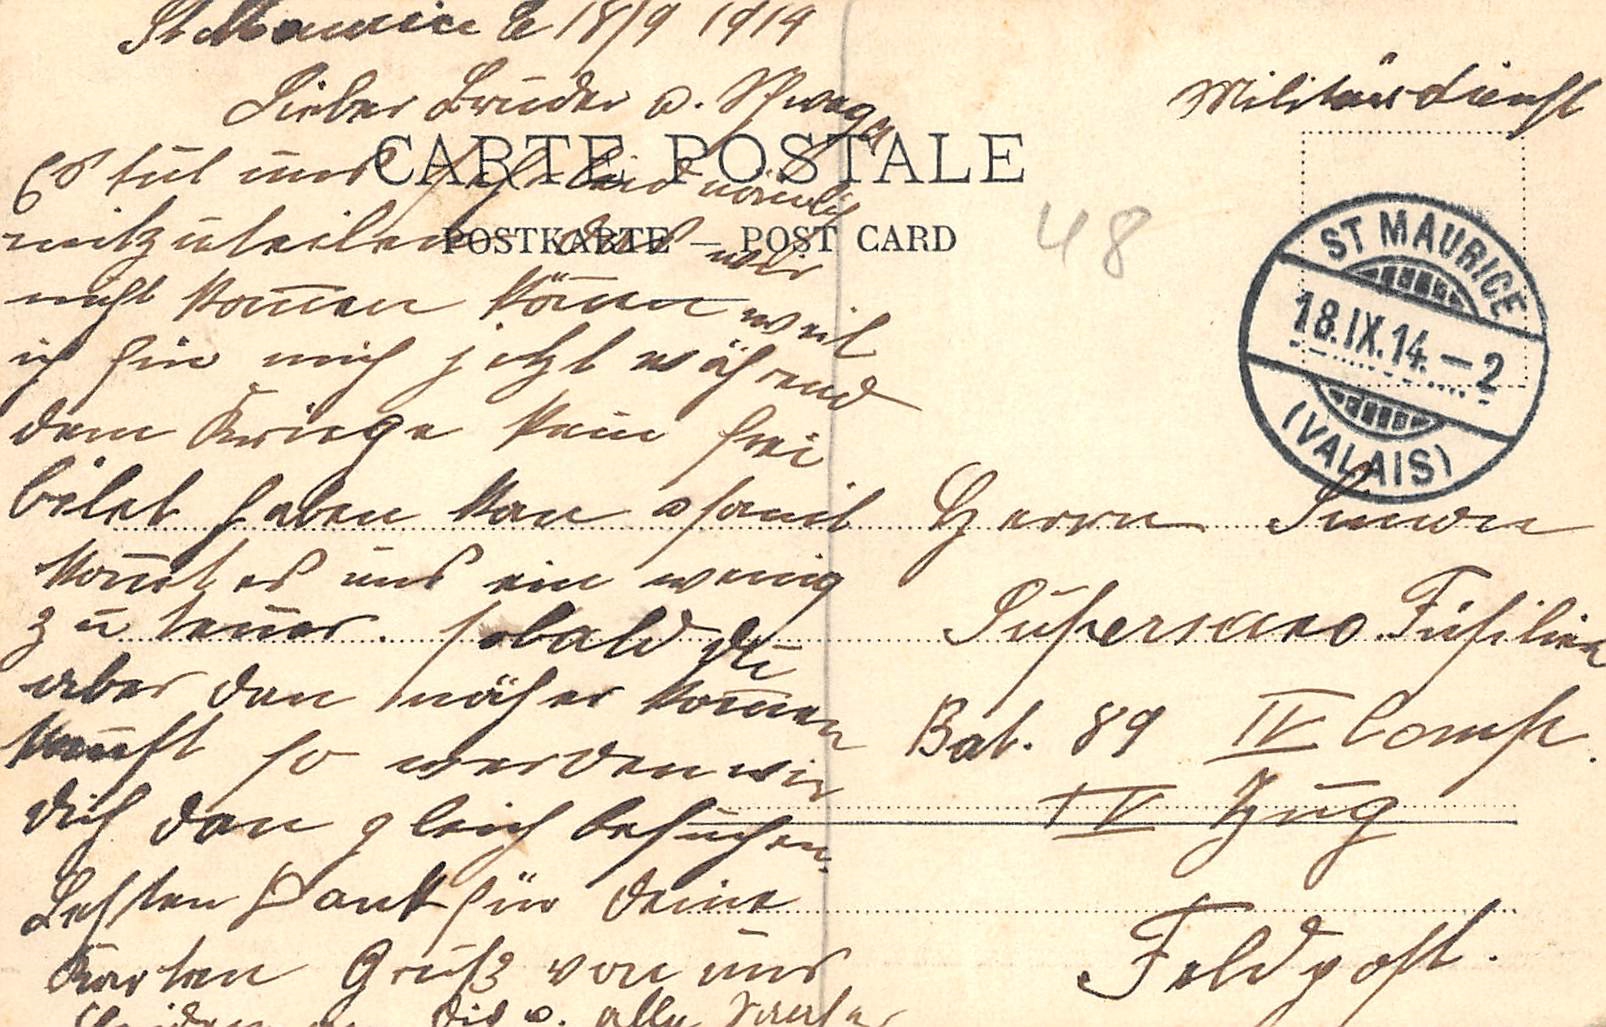 St Maurice d 18/9 1914
Lieber Bruder u. Schwager
Es tut uns sehr leid nämlich
mitzuteilen das wir
nicht kom̅en kön̅en weil
ich für mich jetzt während
dem Kriege kein frei
bilet haben kan u somit
kom̅t es uns ein wenig
zu teuer. sobald Du
aber dan näher kom̅en
kan̅st so werden wir
dich dan gleich besuchen.
Besten Dank für deine
Karten Gruß von uns
beiden an dich u. alle
CARTE POSTALE
POSTKARTE – POST CARD
48
Militärdienst
ST MAURICE
18.IX.14.–2
(VALAIS)
Herrn Simon
Supersaxo Füsilier
Bat. 89 IV Comp.
IV Zug
Feldpost.